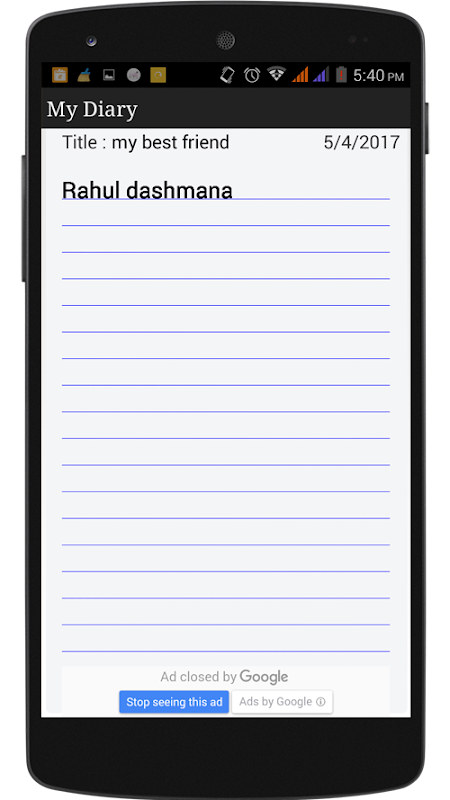 5:40 PM
My Diary
Title : my best friend 5/4/2017
Rahul dashmana
Ad closed by Google
Stop seeing this ad Ads by Google